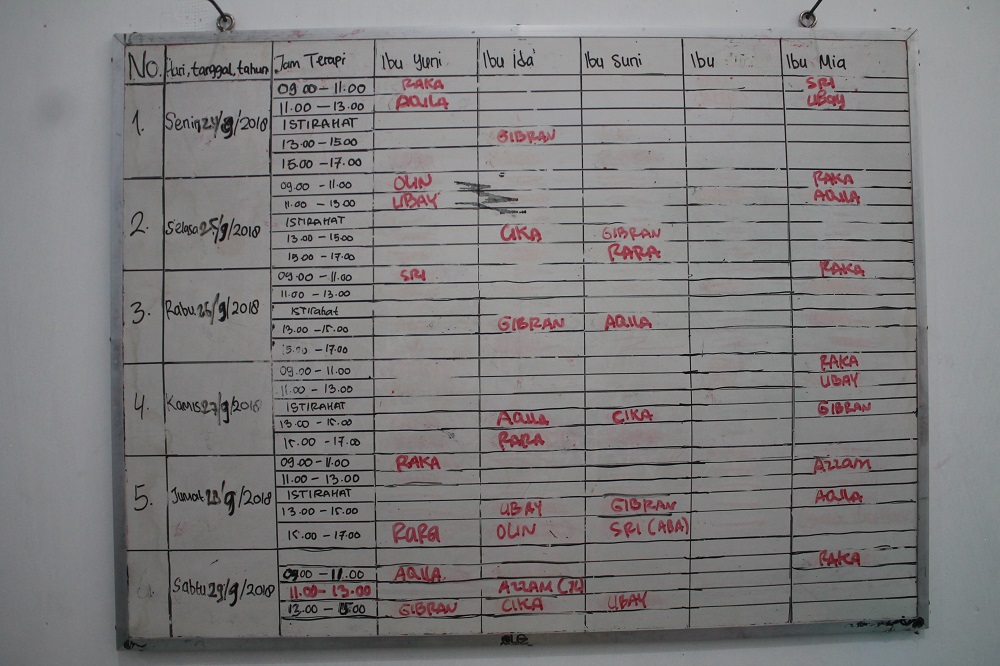 No. Hari, tanggal, tahun Jam Terapi Ibu Yuni Ibu Ida' Ibu Suni Ibu Ibu Mia
1. Senin 24/9/2018
09.00 - 11.00 RAKA SRI
11.00 - 13.00 AQILA UBAY
ISTIRAHAT
13.00 - 15.00 GIBRAN
15.00 - 17.00
2. Selasa 25/9/2018
09.00 - 11.00 OLIN RAKA
11.00 - 13.00 UBAY AQILA
ISTIRAHAT
13.00 - 15.00 CIKA GIBRAN
15.00 - 17.00 RARA
3. Rabu 26/9/2018
09.00 - 11.00 SRI RAKA
11.00 - 13.00
ISTIRahat
13.00 - 15.00 GIBRAN AQILA
15.00 - 17.00
4. Kamis 27/9/2018
09.00 - 11.00 RAKA
11.00 - 13.00 UBAY
ISTIRAHAT GIBRAN
13.00 - 15.00 AQILA CIKA
15.00 - 17.00 RARA
5. Jumat 28/9/2018
09.00 - 11.00 RAKA AZZAM
11.00 - 13.00
ISTIRAHAT AQILA
13.00 - 15.00 UBAY GIBRAN
15.00 - 17.00 RARA OLIN SRI (ABA)
Sabtu 29/9/2018
RAKA
09.00 - 11.00 AQILA
11.00 - 13.00 AZZAM
13.00 - 15.00 GIBRAN CIKA UBAY